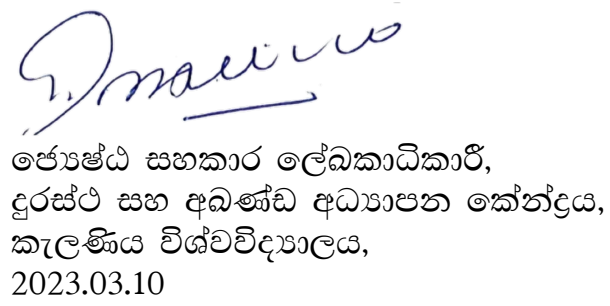 ජ්‍යෙෂ්ඨ සහකාර ලේඛකාධිකාරී,
දුරස්ථ සහ අඛණ්ඩ අධ්‍යාපන කේන්ද්‍රය,
කැලණිය විශ්වවිද්‍යාලය,
2023.03.10